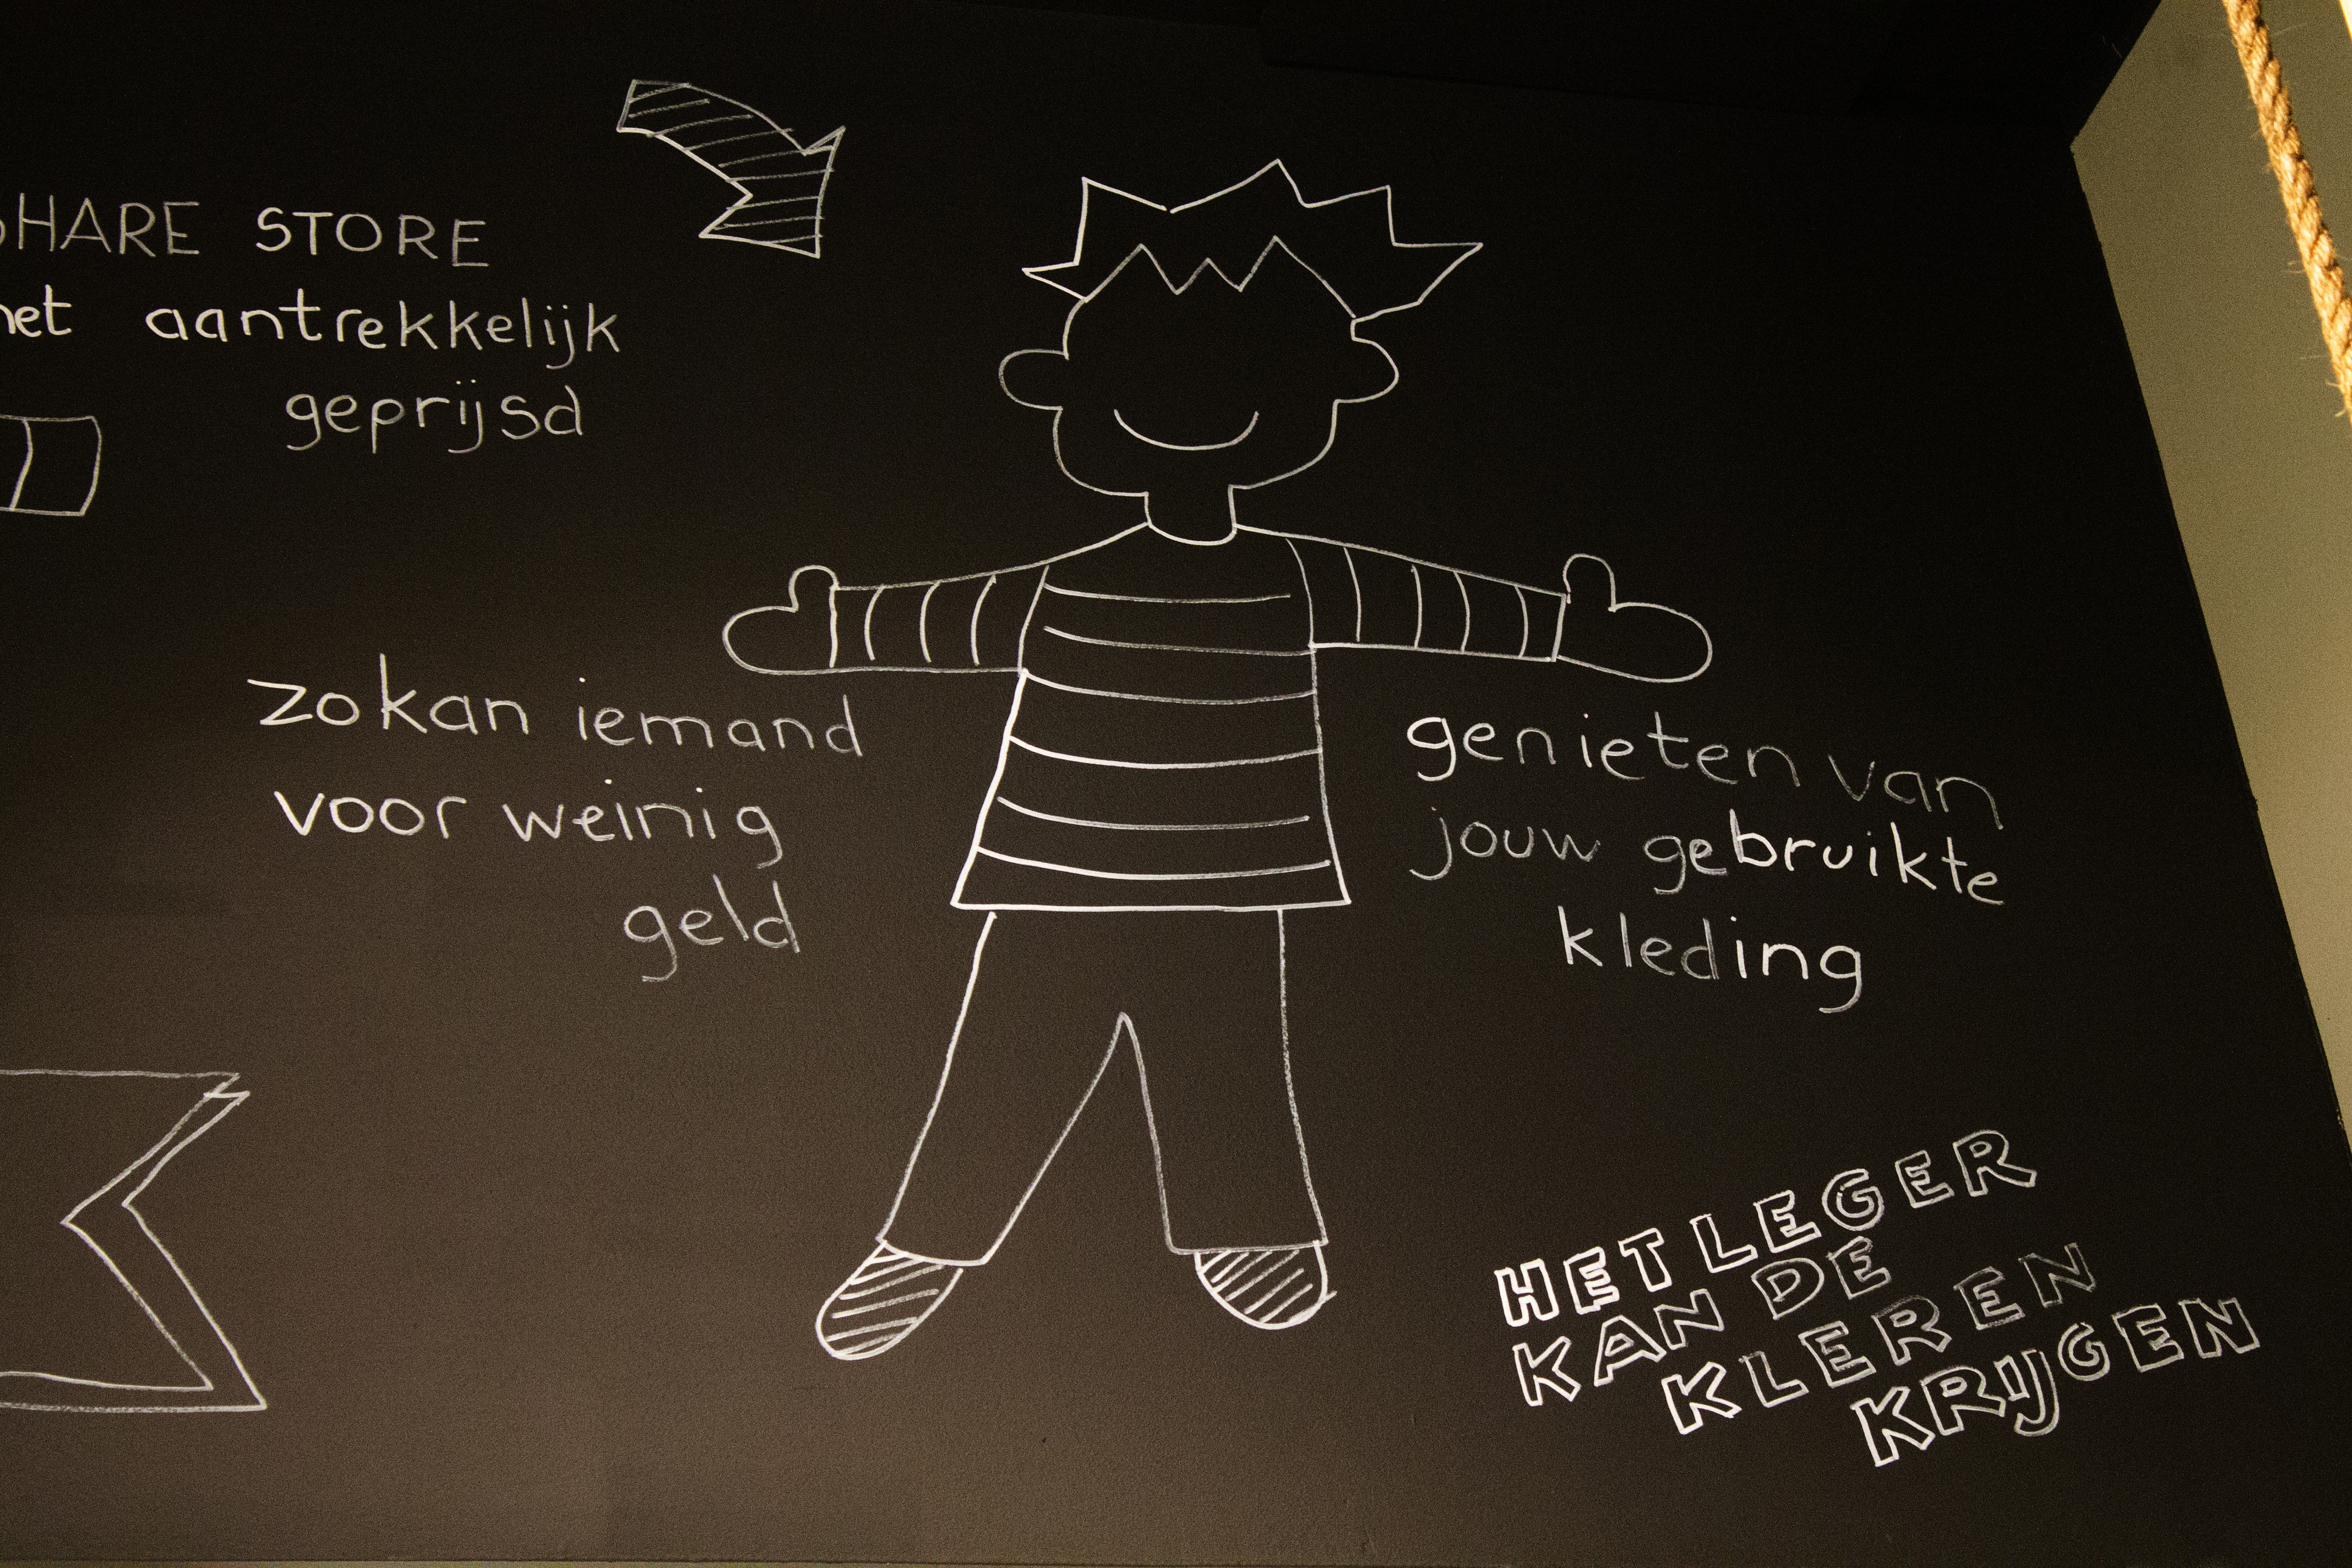 SHARE STORE
het aantrekkelijk
geprijsd
zo kan iemand
voor weinig
geld
genieten van
jouw gebruikte
kleding
HET LEGER
KAN DE
KLEREN
KRIJGEN